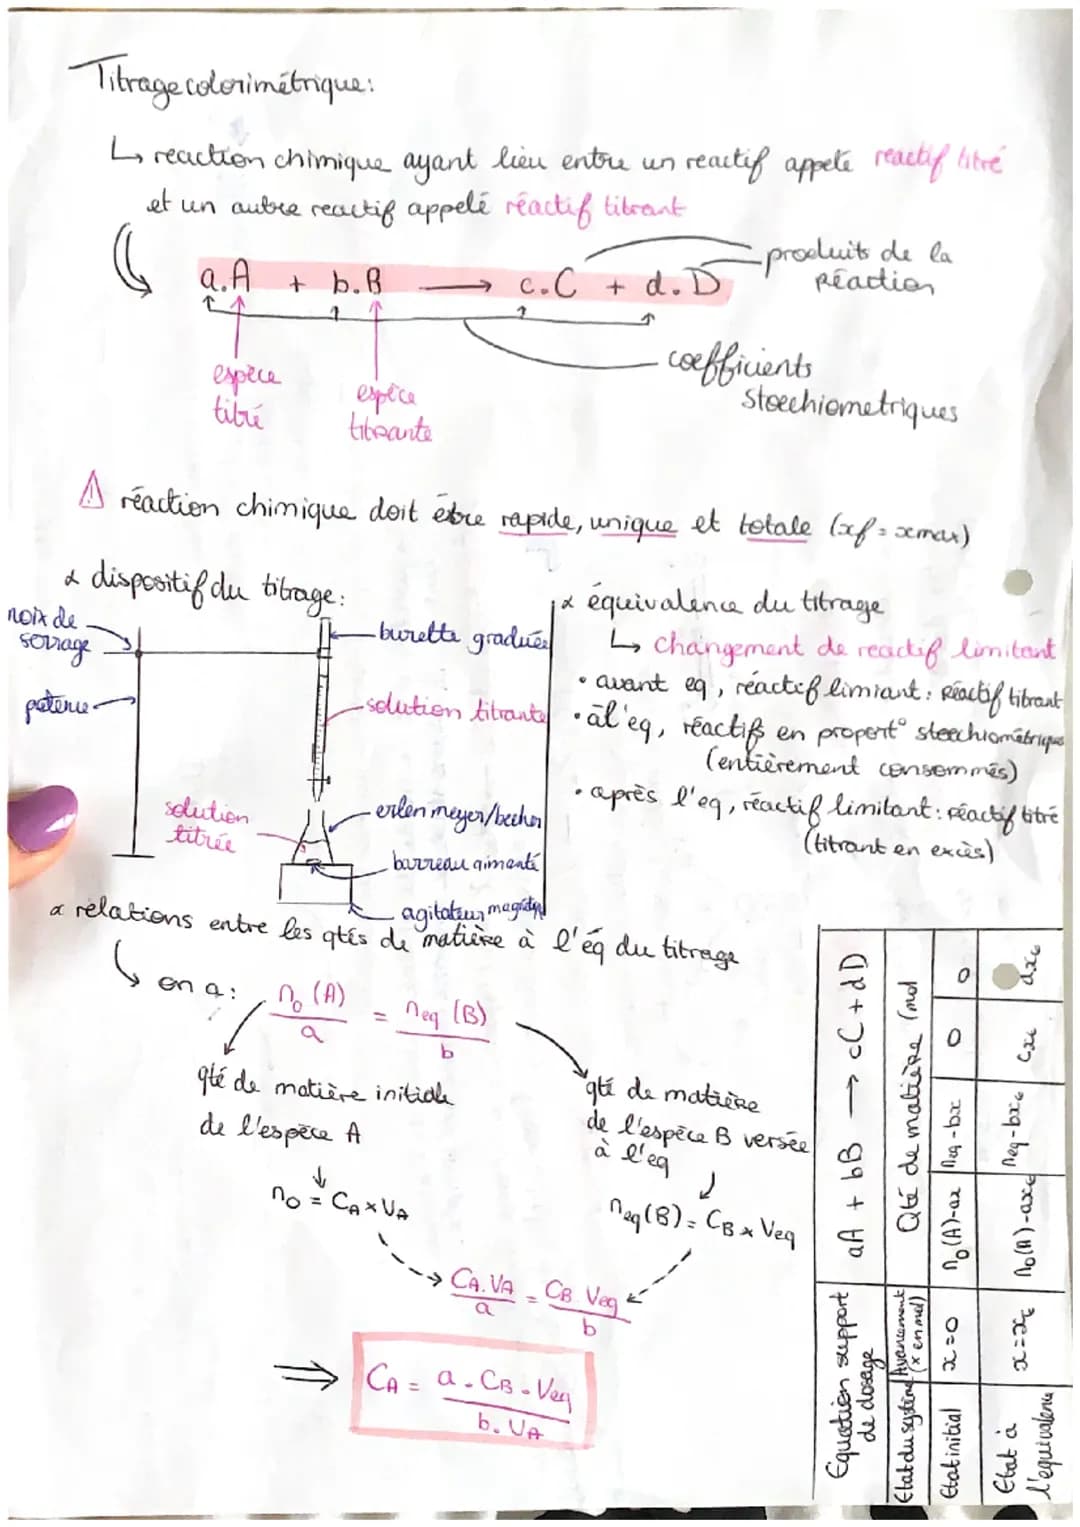 Titrage colorimétrique:
↳ reaction chimique ayant lieu entre un reactif appelé reactif titré
et un autre reactif appelé réactif titrant
a.A + b.B → c.C + d.D
produits de la
réaction
coefficients
stoechiometriques
espèce
titré
espèce
titrante
⚠ réaction chimique doit être rapide, unique et totale (xf = xmax)
α dispositif du titrage:
noix de
serrage
potence
burette graduée
solution titrante
solution
titrée
erlenmeyer/becher
barreau aimanté
agitateur
α équivalence du titrage
↳ changement de reactif limitant
• avant eq, réactif limiant: réactif titrant
• à l'eq, réactifs en proport° stoechiométriques
(entièrement consommés)
• après l'eq, réactif limitant: réactif titré
(titrant en excès)
α relations entre les qtés de matière à l'éq du titrage
↳ on a: n₀(A)/a = neq(B)/b
qté de matière initiale
de l'espèce A
n₀ = CA × VA
qté de matière
de l'espèce B versée
à l'eq
neq(B) = CB × Veq
CA.VA/a = CB.Veq/b
⇒ CA = a.CB.Veq/b.VA
Equation support
de dosage
aA + bB → cC + dD
Etat du système
Avancement
(x en mol)
Qté de matière (mol
Etat initial
x=0
n₀(A)-ax
neq-bx
0
0
Etat à
l'equivalence
x=xE
n₀(A)-axE
neq-bxE
cxE
dxE